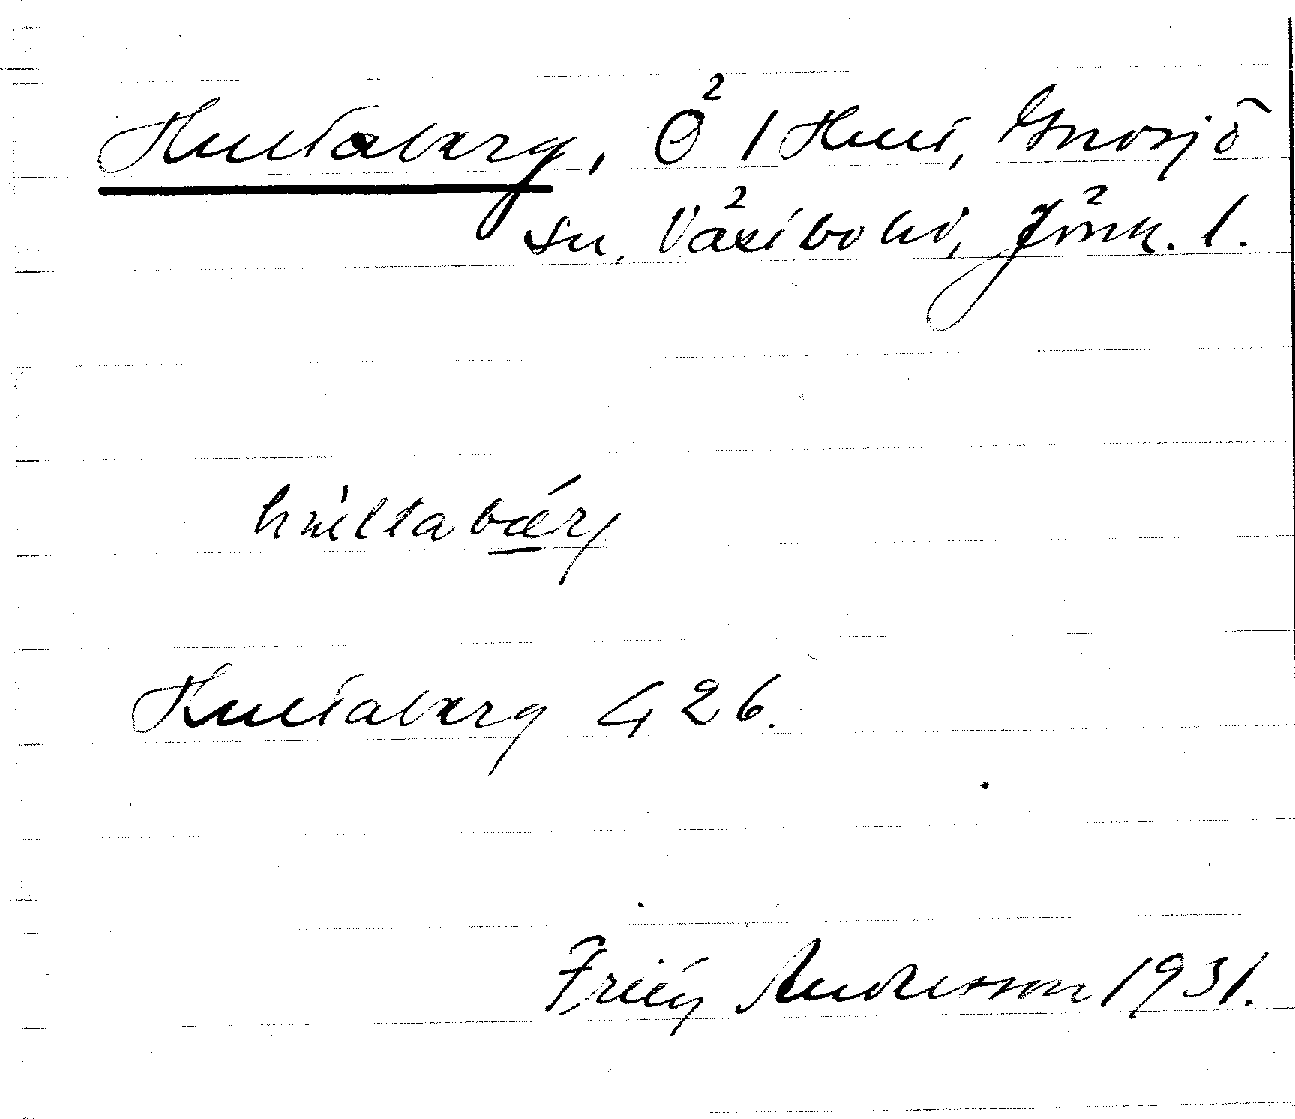 Hultaberg, Ö 1 Hult, Gnosjö
sn, Västbo hd, Jönk. l.
hultabärg
Hultaberg 426.
Frieg Andersson 1931.